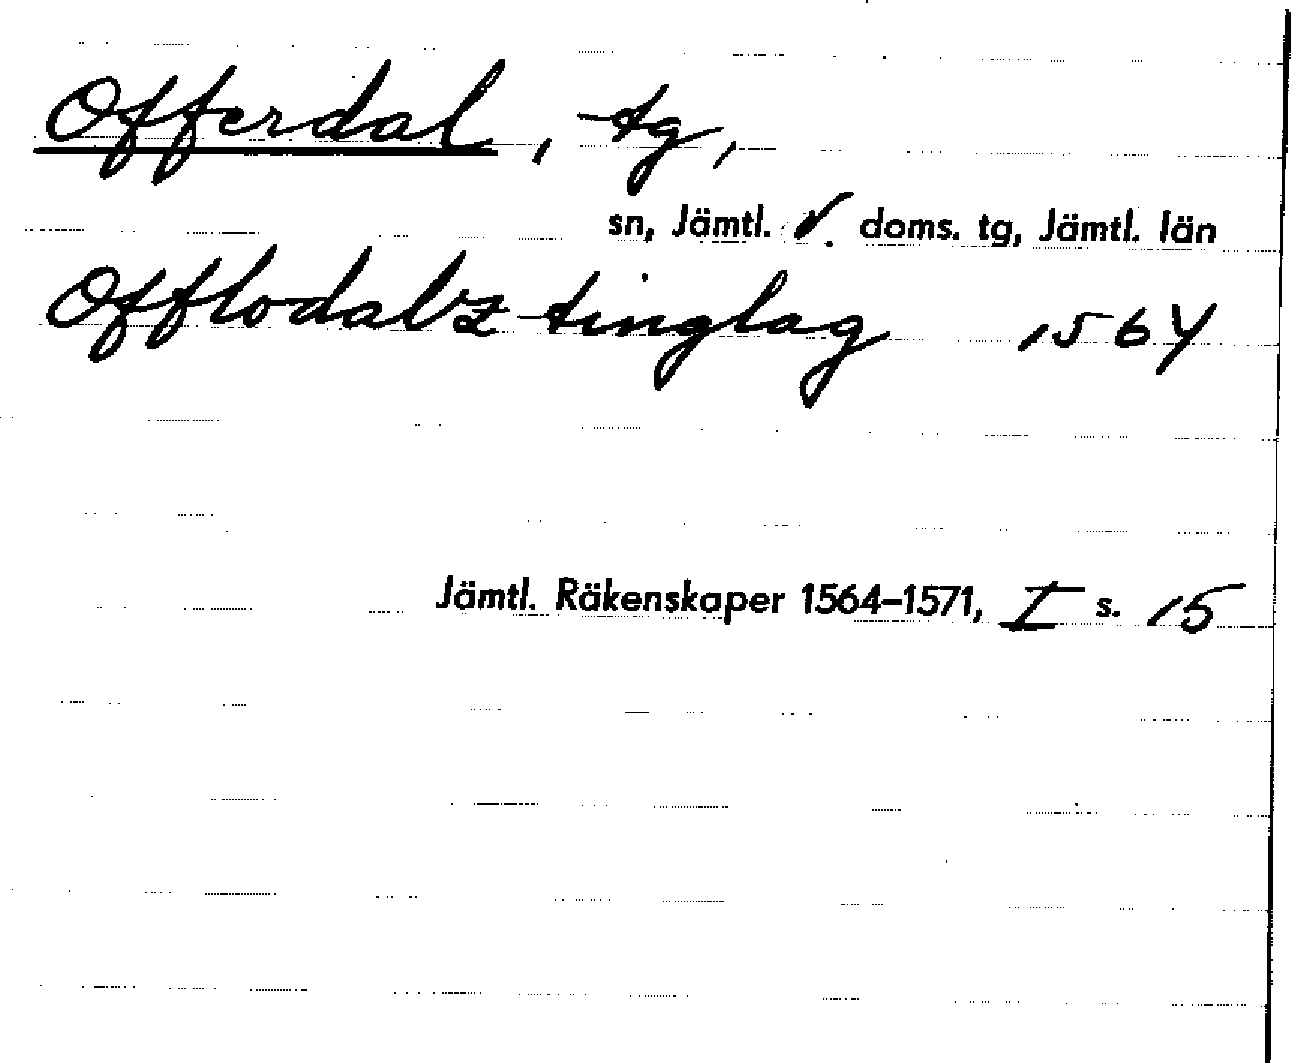 Offerdal, tg,
sn, Jämtl. V. doms. tg, Jämtl. län
Offlodalz tinglag 1564
Jämtl. Räkenskaper 1564–1571, I s. 15